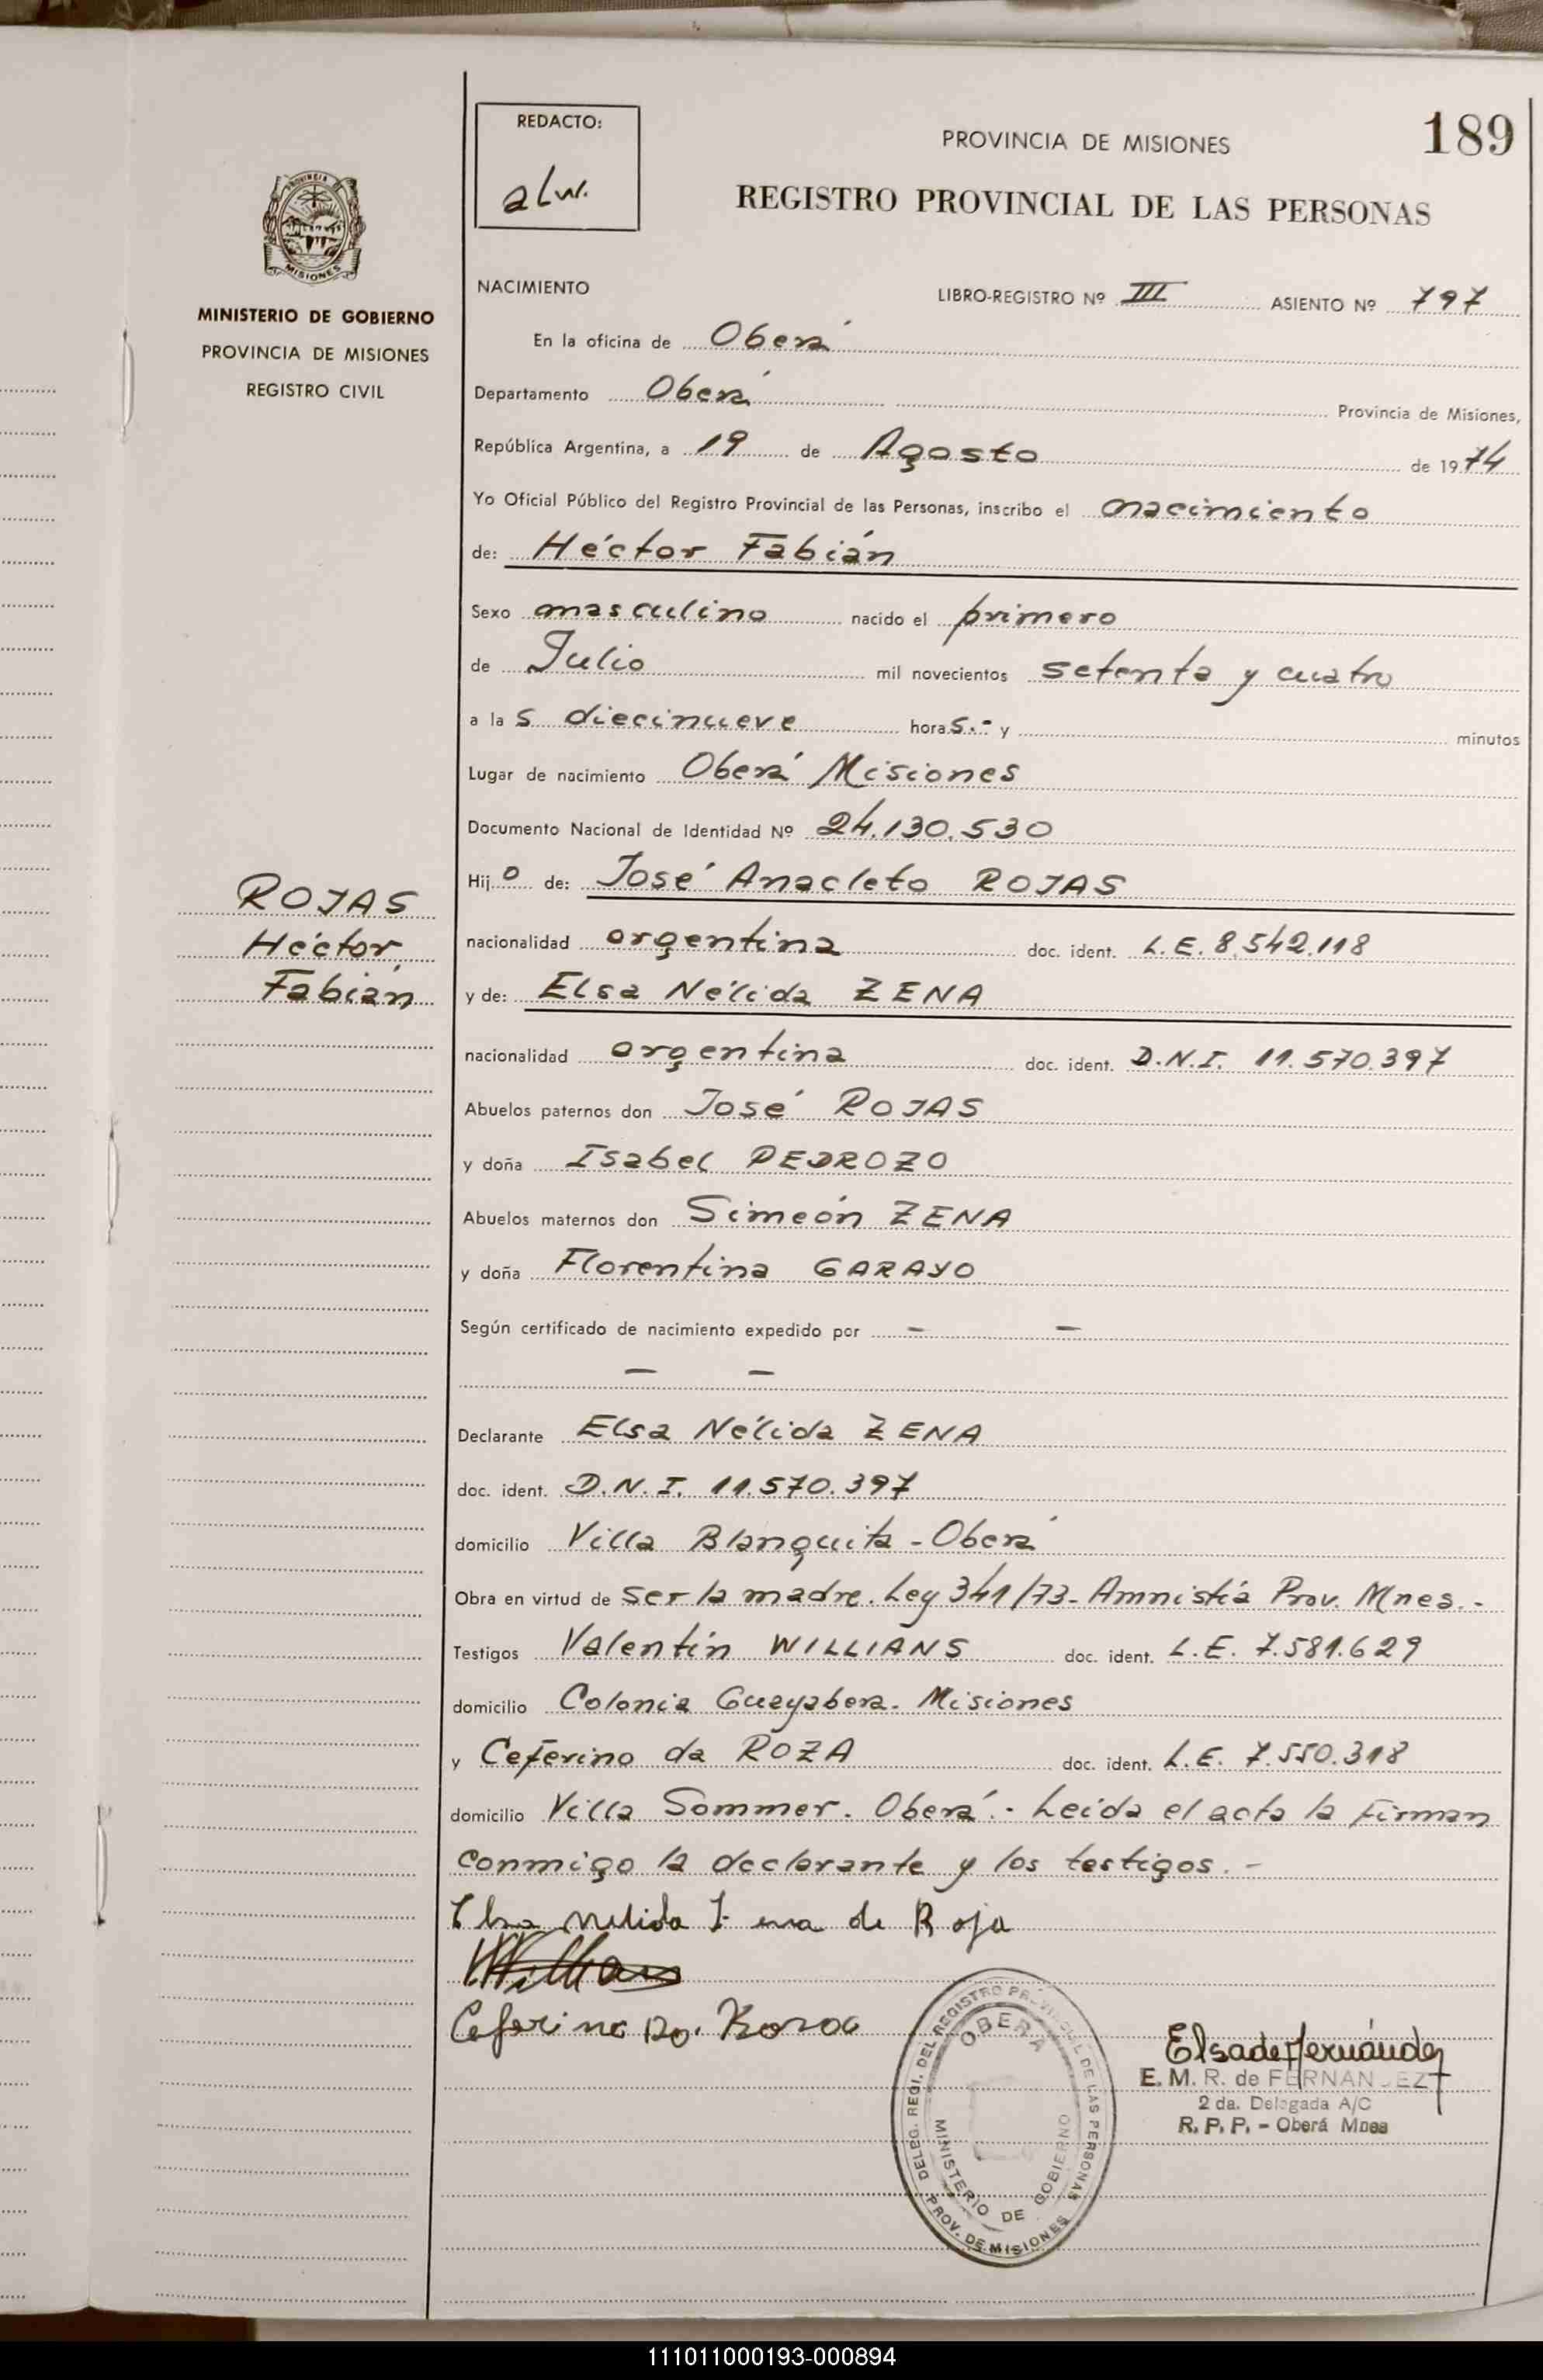 REDACTO:
alw.
189
PROVINCIA DE MISIONES
REGISTRO PROVINCIAL DE LAS PERSONAS
PROVINCIA DE
MISIONES
MINISTERIO DE GOBIERNO
PROVINCIA DE MISIONES
REGISTRO CIVIL
NACIMIENTO LIBRO-REGISTRO Nº III ASIENTO Nº 797
En la oficina de Oberá
Departamento Oberá Provincia de Misiones,
República Argentina, a 19 de Agosto de 1974
Yo Oficial Público del Registro Provincial de las Personas, inscribo el nacimiento
de: Héctor Fabián
Sexo masculino nacido el primero
de Julio mil novecientos setenta y cuatro
a las diecinueve horas.- y minutos
Lugar de nacimiento Oberá Misiones
Documento Nacional de Identidad Nº 24.130.530
Hijo de: José Anacleto ROJAS
ROJAS
Héctor
Fabián
nacionalidad argentina doc. ident. L.E. 8.542.118
y de: Elsa Nélida ZENA
nacionalidad argentina doc. ident. D.N.I. 11.570.397
Abuelos paternos don José ROJAS
y doña Isabel PEDROZO
Abuelos maternos don Simeón ZENA
y doña Florentina GARAYO
Según certificado de nacimiento expedido por — —
— —
Declarante Elsa Nélida ZENA
doc. ident. D.N.I. 11.570.397
domicilio Villa Blanquita - Oberá
Obra en virtud de ser la madre. Ley 341/73- Amnistía Prov. Mnes.-
Testigos Valentín WILLIANS doc. ident. L.E. 7.581.629
domicilio Colonia Guayabera. Misiones
y Ceferino da ROZA doc. ident. L.E. 7.550.318
domicilio Villa Sommer. Oberá.- Leída el acta la firman
conmigo la declarante y los testigos.-
Elsa Nelida Zena de Roja
Willians
Ceferino Da. Roza
DELEG. REGI. DEL REGISTRO PROVINCIAL DE LAS PERSONAS
OBERÁ
MINISTERIO DE GOBIERNO
PROV. DE MISIONES
Elsa de Fernández
E. M. R. de FERNANDEZ
2 da. Delegada A/C
R. P. P. - Oberá Mnes
111011000193-000894